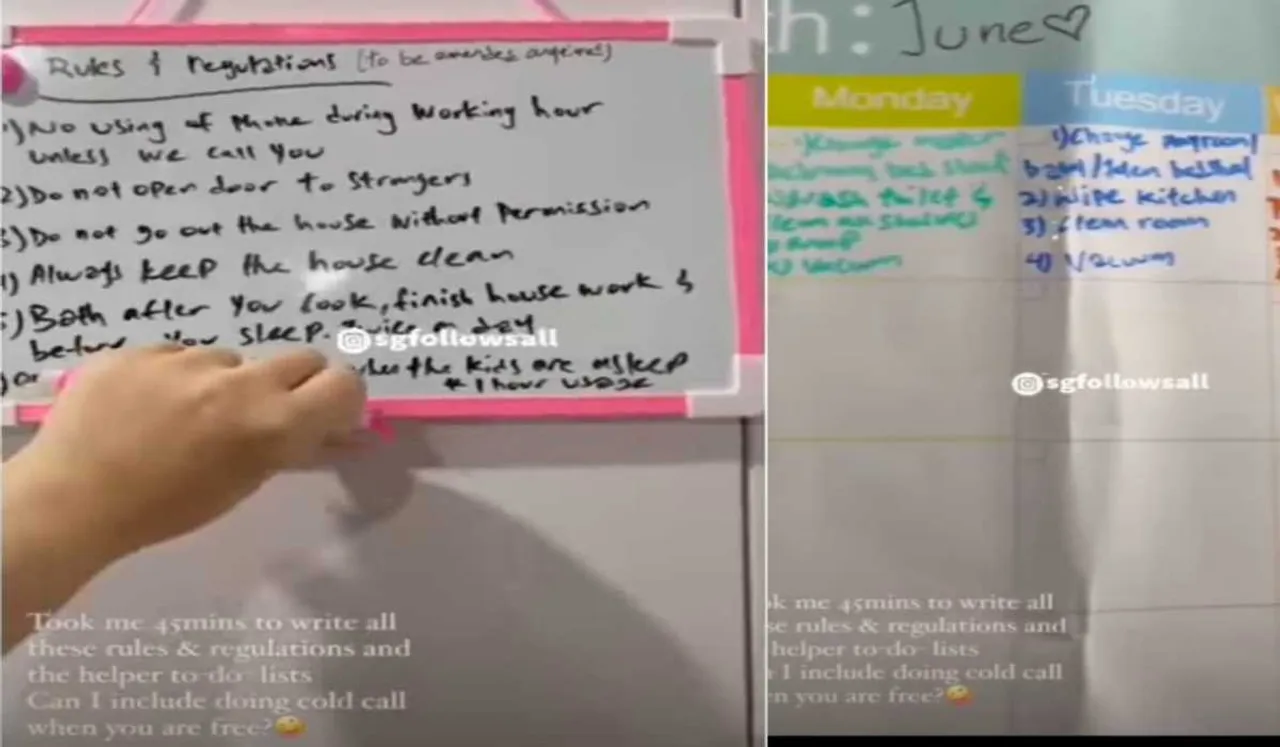 Rules & Regulations (to be amended
1) No using of Phone during Working hour
unless we call you
2) Do not open door to Strangers
3) Do not go out the house without Permission
4) Always keep the house clean
5) Bath after you cook, finish house work &
before you sleep. twice a day
when the kids are asleep
* 1 hour usage
sgfollowsall
Took me 45mins to write all
these rules & regulations and
the helper to-do- lists
Can I include doing cold call
when you are free?🤪
th: June♡
Monday
bed sheet
toilet &
Vacuum
Tuesday
1) Change
2) Wipe kitchen
3) Clean room
4) Vacuum
sgfollowsall
k me 45mins to write all
se rules & regulations and
helper to-do- lists
I include doing cold call
n you are free?🤪